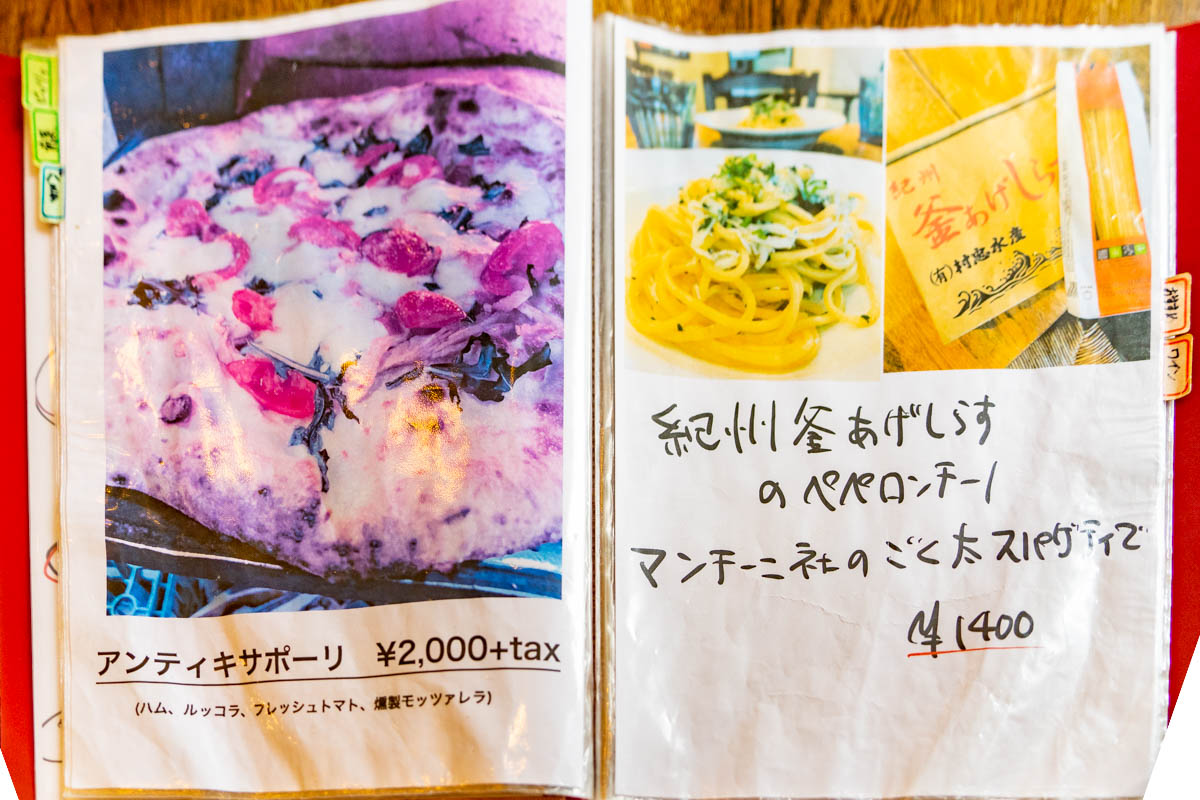 アンティキサポーリ ¥2,000+tax
(ハム、ルッコラ、フレッシュトマト、燻製モッツァレラ)
紀州
釜あげしらす
(有)村忠水産
紀州釜あげしらす
のペペロンチーノ
マンチーニ社のごく太スパゲティで
¥1400
ワイン